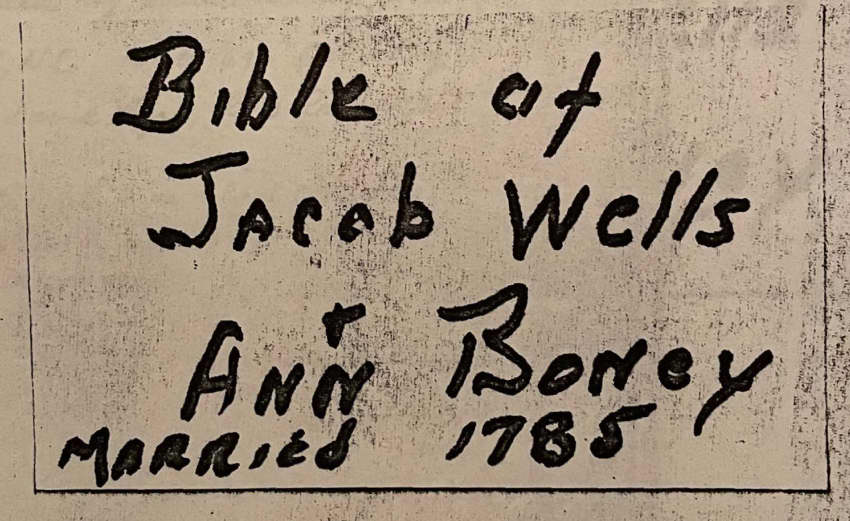 Bible of
Jacob Wells
+
Ann Boney
Married 1785